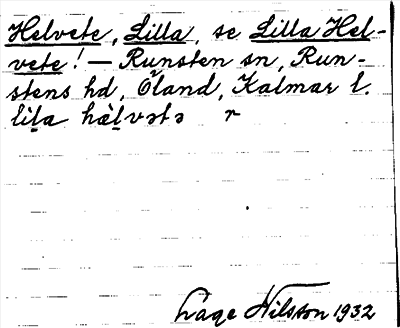 Helvete, Lilla, se Lilla Hel-
vete! — Runsten sn, Run-
stens hd, Öland, Kalmar l.
lịla hæ̀l̥vətə r
Lage Nilsson 1932